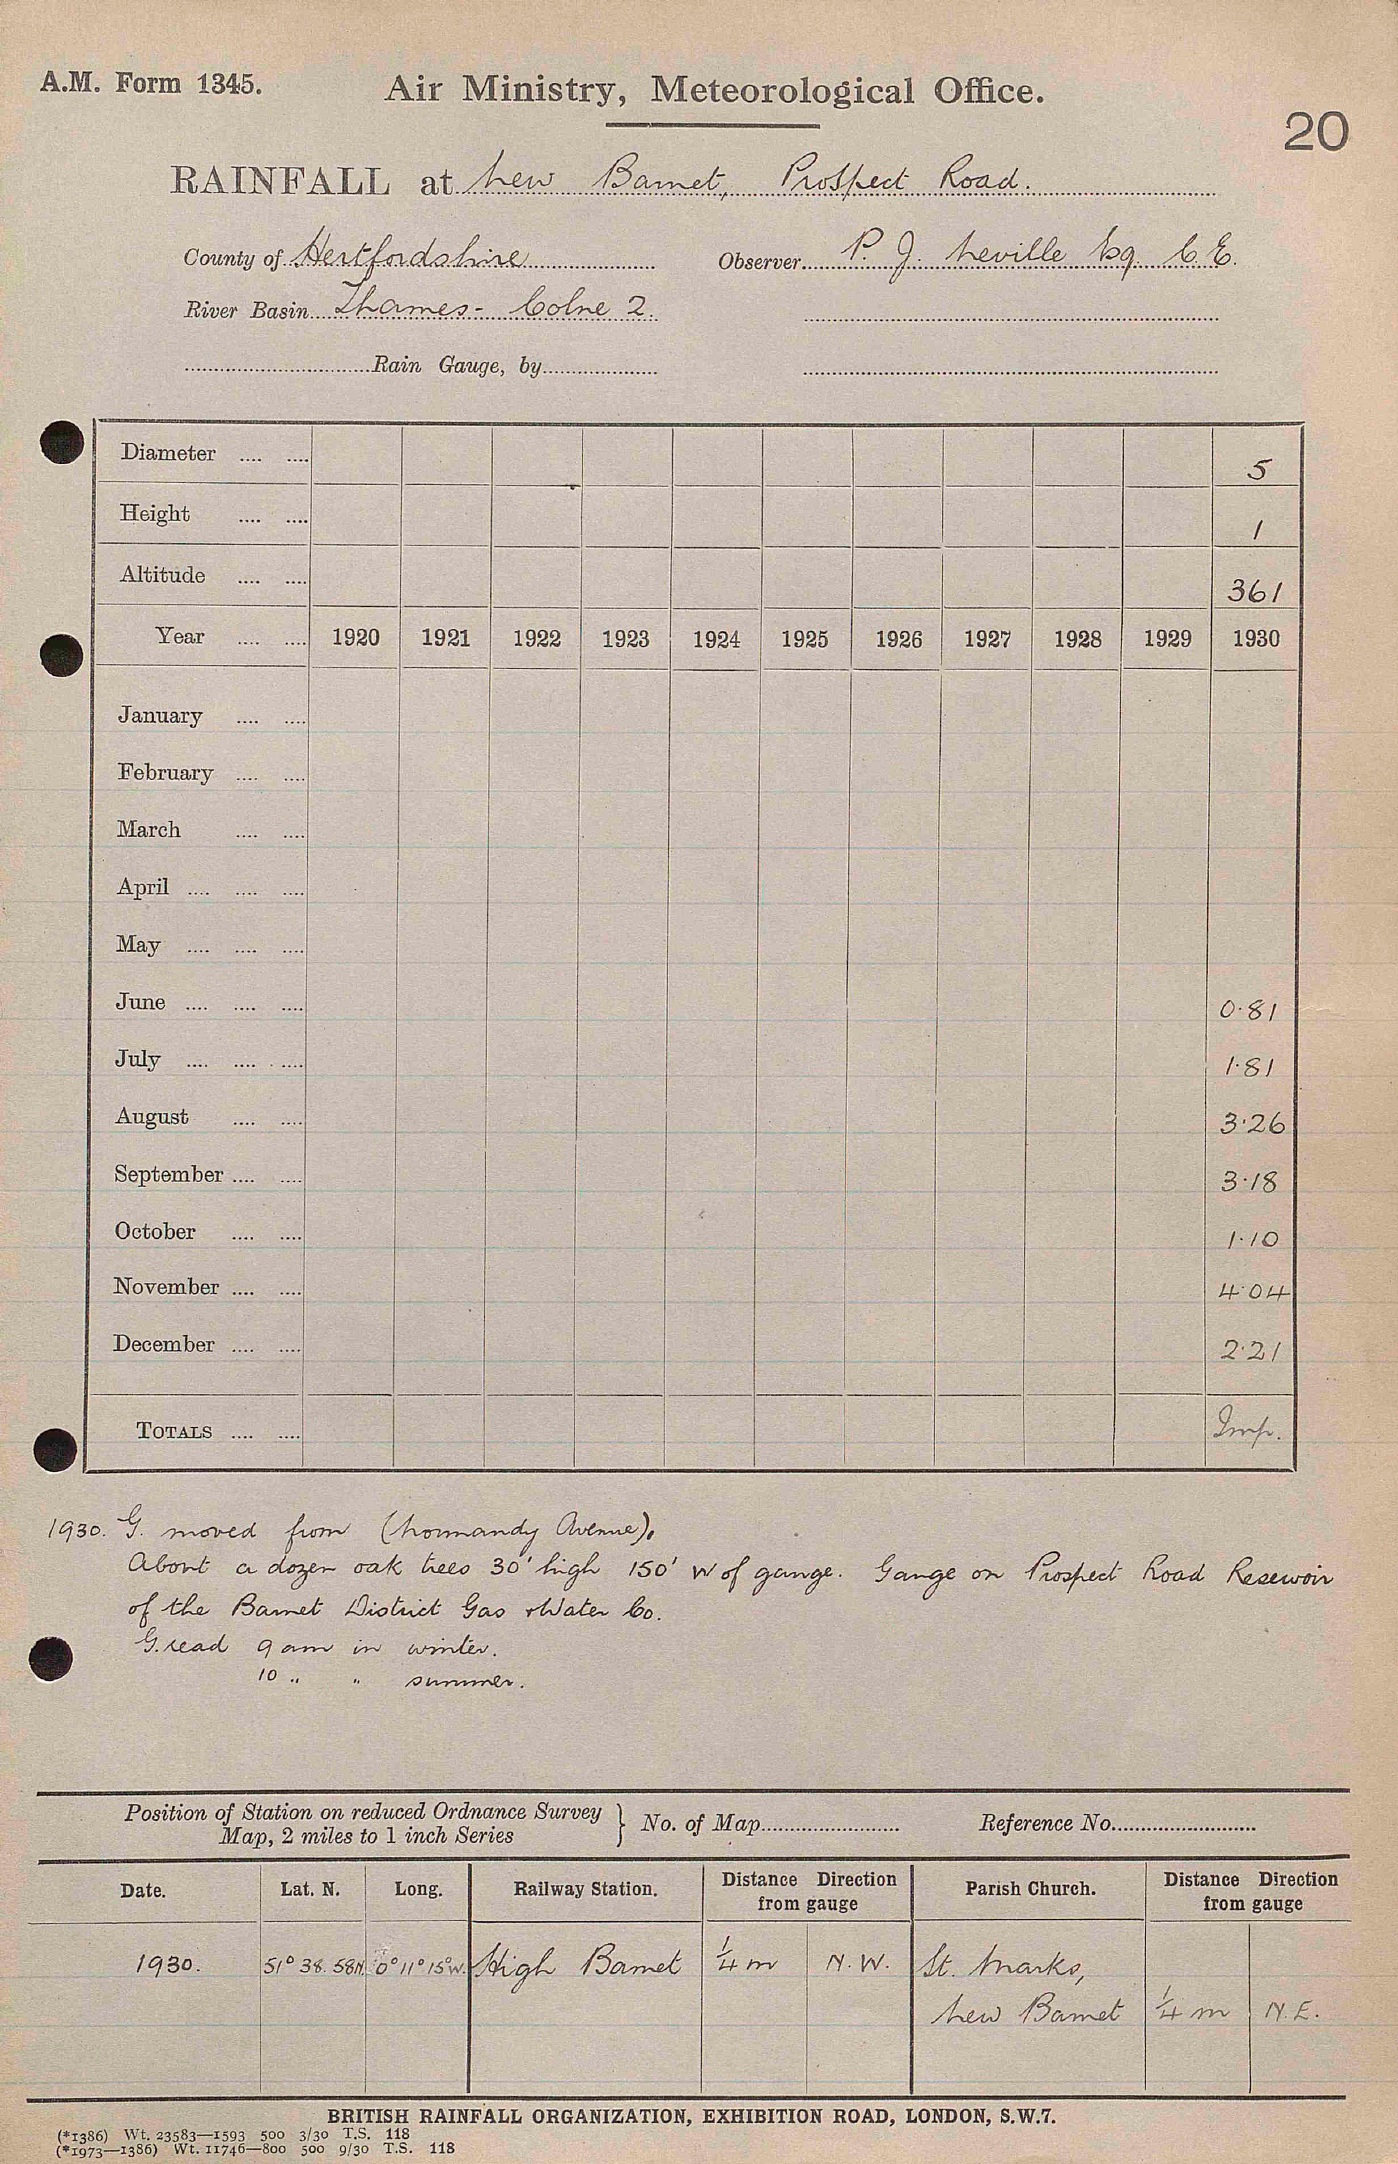 A.M. Form 1345.
Air Ministry, Meteorological Office.
20
RAINFALL at New Barnet, Prospect Road.
County of Hertfordshire
Observer P. J. Neville Esq. C.E.
River Basin Thames - Colne 2.
Rain Gauge, by
Diameter 5
Height 1
Altitude 361
Year 1920 1921 1922 1923 1924 1925 1926 1927 1928 1929 1930
January
February
March
April
May
June 0.81
July 1.81
August 3.26
September 3.18
October 1.10
November 4.04
December 2.21
TOTALS Imp.
1930. G. moved from (Normandy Avenue).
About a dozen oak trees 30' high 150' W of gauge. Gauge on Prospect Road Reservoir
of the Barnet District Gas + Water Co.
G. read 9 am in winter.
10 " " summer.
Position of Station on reduced Ordnance Survey
Map, 2 miles to 1 inch Series } No. of Map Reference No.
Date. Lat. N. Long. Railway Station. Distance Direction from gauge Parish Church. Distance Direction from gauge
1930. 51° 38. 58N. 0° 11° 15°W. High Barnet 1/4 m N.W. St. Marks,
New Barnet 1/4 m N.E.
BRITISH RAINFALL ORGANIZATION, EXHIBITION ROAD, LONDON, S.W.7.
(*1386) Wt. 23583—1593 500 3/30 T.S. 118
(*1973—1386) Wt. 11746—800 500 9/30 T.S. 118